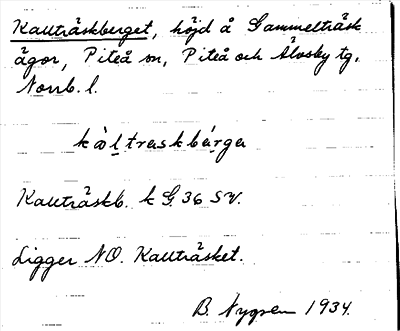 Kallträskberget, höjd å Gammelträsk
ägor, Piteå sn, Piteå och Älvsby tg,
Norrb. l.
kàl̠traskbár̠ga
Kallträskb. k G. 36 SV.
Ligger NO. Kallträsket.
B. Nygren 1934.